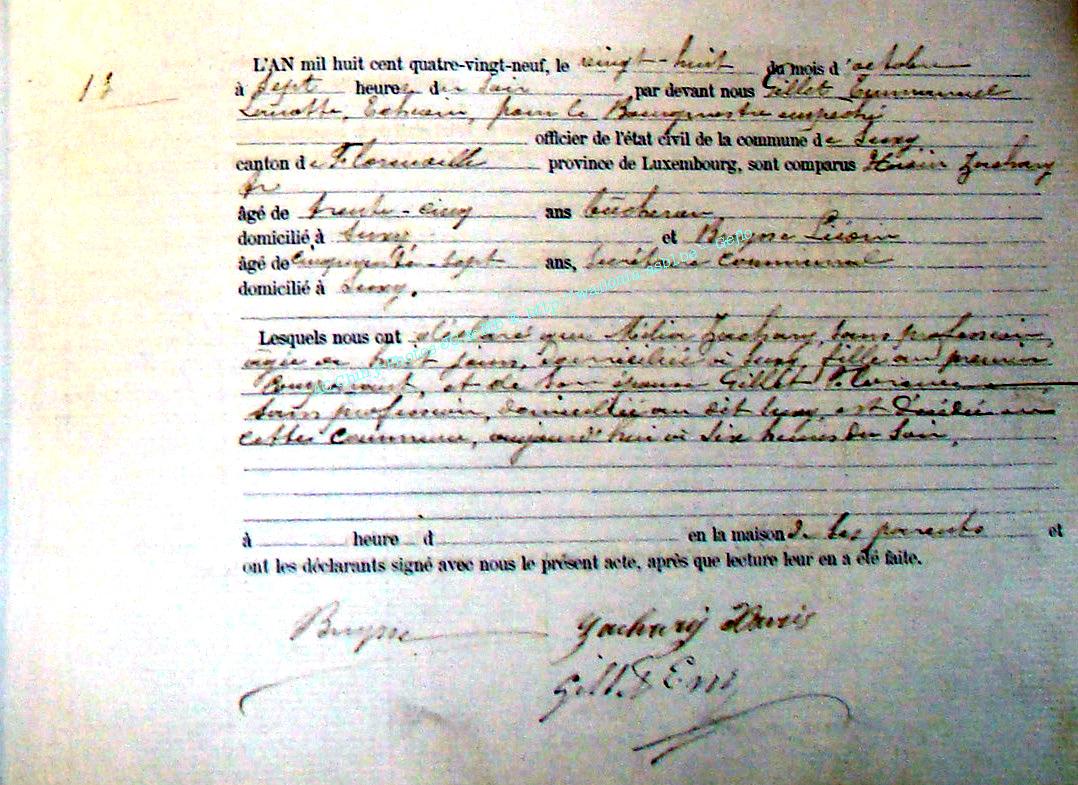 13
L'AN mil huit cent quatre-vingt-neuf, le vingt-huit du mois d'octobre
à sept heures du soir par devant nous Gillet Emmanuel
Echevin, pour le Bourgmestre empeché
officier de l'état civil de la commune de Suxy
canton de Florenville province de Luxembourg, sont comparus Zachary
âgé de trente-cinq ans bûcheron
domicilié à Suxy et Buysse
âgé de cinquante-sept ans, secrétaire communal
domicilié à Suxy.
Lesquels nous ont déclaré que Zachary, sans profession,
agée de huit jours, domiciliée à Suxy, fille du premier
comparant, et de son épouse Gillet
sans profession, domiciliée au dit Suxy, est décédée en
cette commune, aujourd'hui à six heures du soir,
à heure d en la maison de ses parents et
ont les déclarants signé avec nous le présent acte, après que lecture leur en a été faite.
Buysse Zachary
Gillet Em